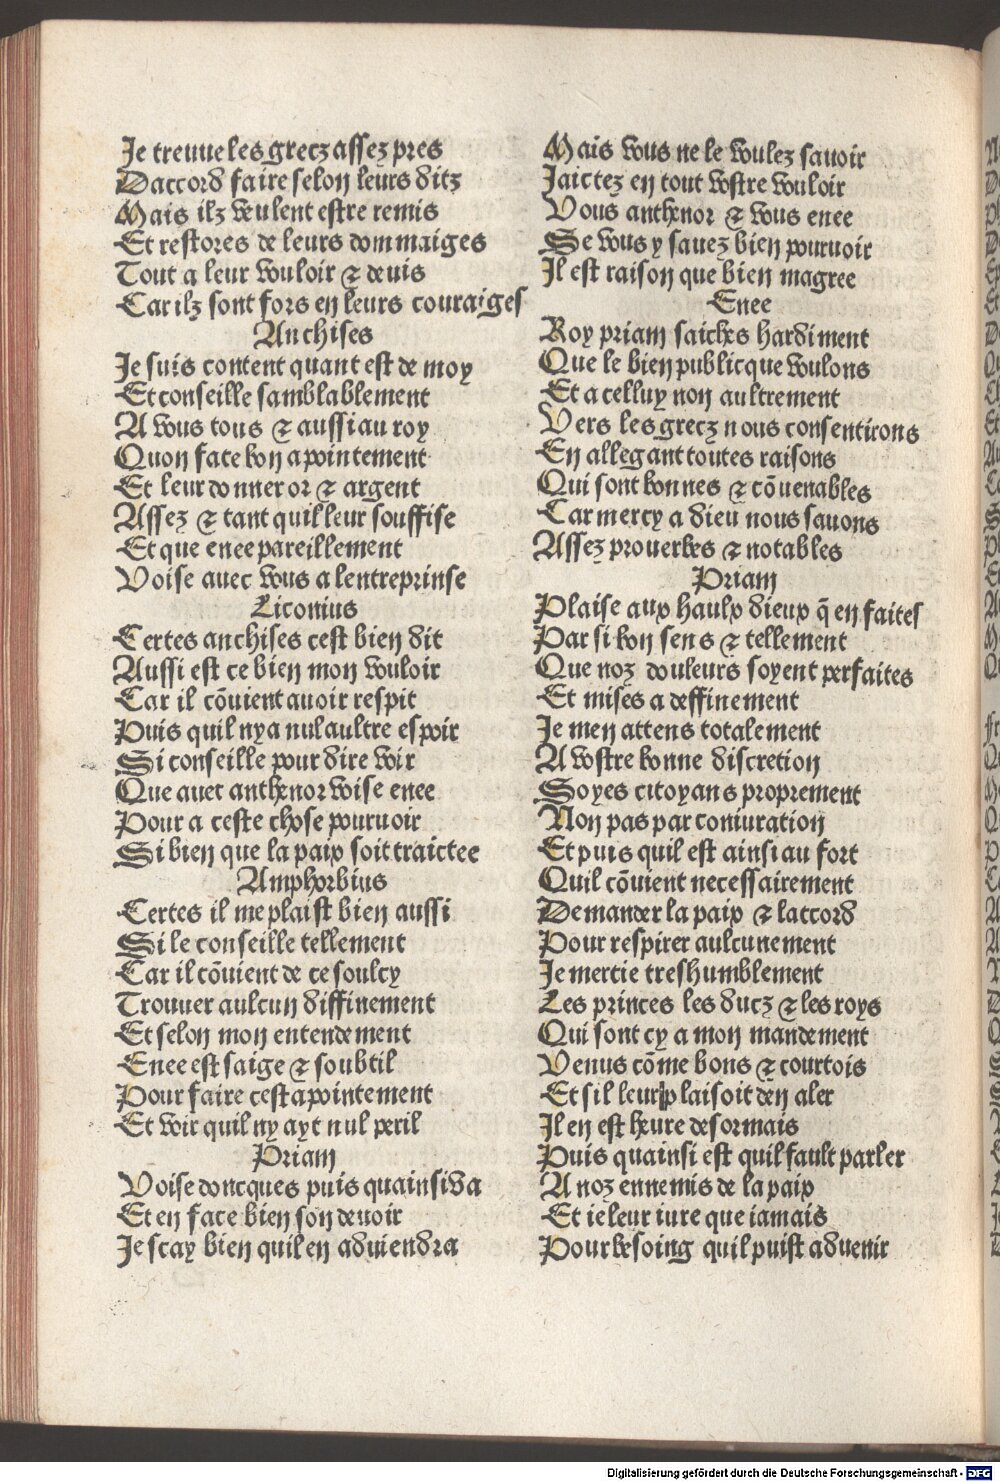 Je treuue les grecz assez pres
Daccord faire selon leurs ditz
Mais ilz veulent estre remis
Et restores de leurs dommaiges
Tout a leur vouloir ⁊ deuis
Car ilz sont fors en leurs couraiges
Anchises
Je suis content quant est de moy
Et conseille samblablement
A vous tous ⁊ aussi au roy
Quon face bon apointement
Et leur donner or ⁊ argent
Assez ⁊ tant quil leur souffise
Et que enee pareillement
Voise auec vous a lentreprinse
Liconius
Certes anchises cest bien dit
Aussi est ce bien mon vouloir
Car il cōuient auoir respit
Puis quil nya nul aultre espoir
Si conseille pour dire voir
Que auec anthenor voise enee
Pour a ceste chose pouruoir
Si bien que la paix soit traictee
Amphorbius
Certes il me plaist bien aussi
Si le conseille tellement
Car il cōuient de ce soulcy
Trouuer aulcun diffinement
Et selon mon entendement
Enee est saige ⁊ soubtil
Pour faire cest apointement
Et voir quil ny ayt nul peril
Priam
Voise doncques puis quainsi va
Et en face bien son deuoir
Je scay bien quil en aduiendra
Mais vous ne le voulez sauoir
Faictez en tout vostre vouloir
Vous anthenor ⁊ vous enee
Se vous y sauez bien pouruoir
Il est raison que bien magree
Enee
Roy priam saiches hardiment
Que le bien publicque voulons
Et a celluy non aultrement
Vers les grecz nous consentirons
En allegant toutes raisons
Qui sont bonnes ⁊ cōuenables
Car mercy a dieu nous sauons
Assez prouerbes ⁊ notables
Priam
Plaise aux haulx dieux q̄ en faites
Par si bon sens ⁊ tellement
Que noz douleurs soyent perfaites
Et mises a deffinement
Je men attens totalement
A vostre bonne discretion
Soyes citoyans proprement
Non pas par coniuration
Et puis quil est ainsi au fort
Quil cōuient necessairement
Demander la paix ⁊ laccord
Pour respirer aulcunement
Je mercie treshumblement
Les princes les ducz ⁊ les roys
Qui sont cy a mon mandement
Venus cōme bons ⁊ courtois
Et sil leur plaisoit den aler
Il en est heure desormais
Puis quainsi est quil fault parler
A noz ennemis de la paix
Et ie leur iure que iamais
Pour besoing quil puist aduenir
Digitalisierung gefördert durch die Deutsche Forschungsgemeinschaft - DFG